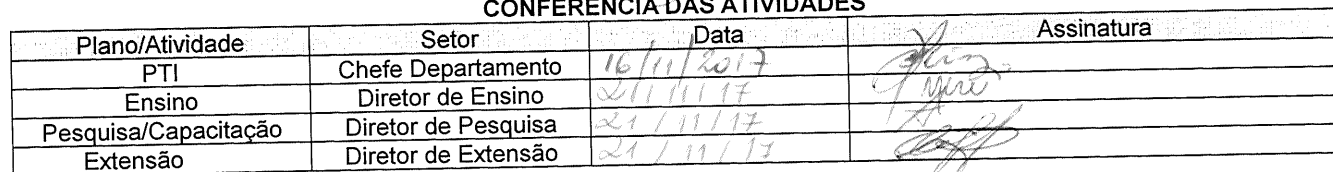 CONFERÊNCIA DAS ATIVIDADES
Plano/Atividade Setor Data Assinatura
PTI Chefe Departamento 16/11/2017
Ensino Diretor de Ensino 21/11/17
Pesquisa/Capacitação Diretor de Pesquisa 21/11/17
Extensão Diretor de Extensão 21/11/17